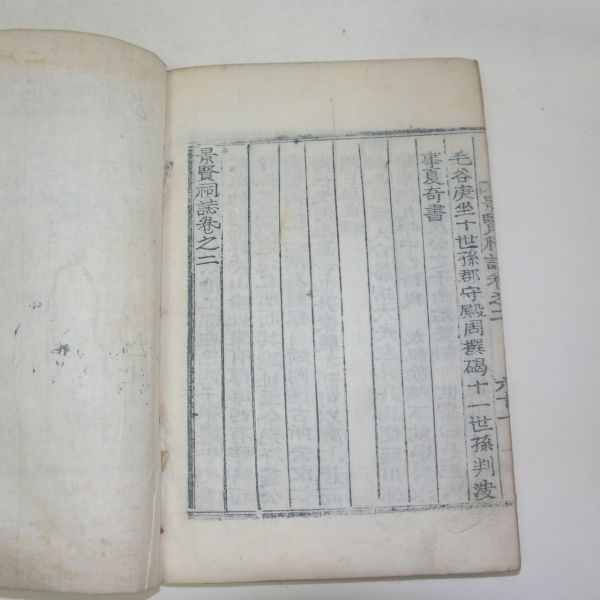 景賢祠誌卷之二 六十一
毛谷庚坐十世孫郡守殿周撰碣十一世孫判決
事夏奇書
景賢祠誌卷之二